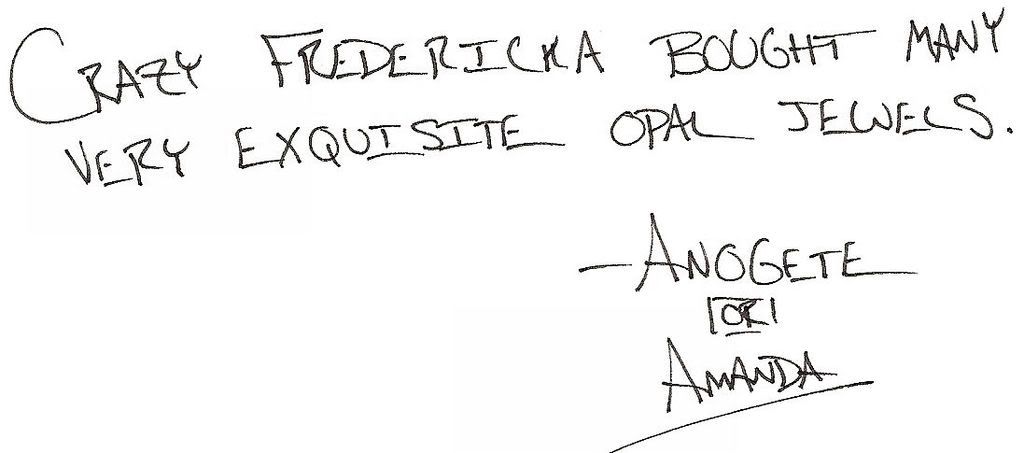 CRAZY FREDERICKA BOUGHT MANY
VERY EXQUISITE OPAL JEWELS.
—ANOGETE
|OR|
AMANDA